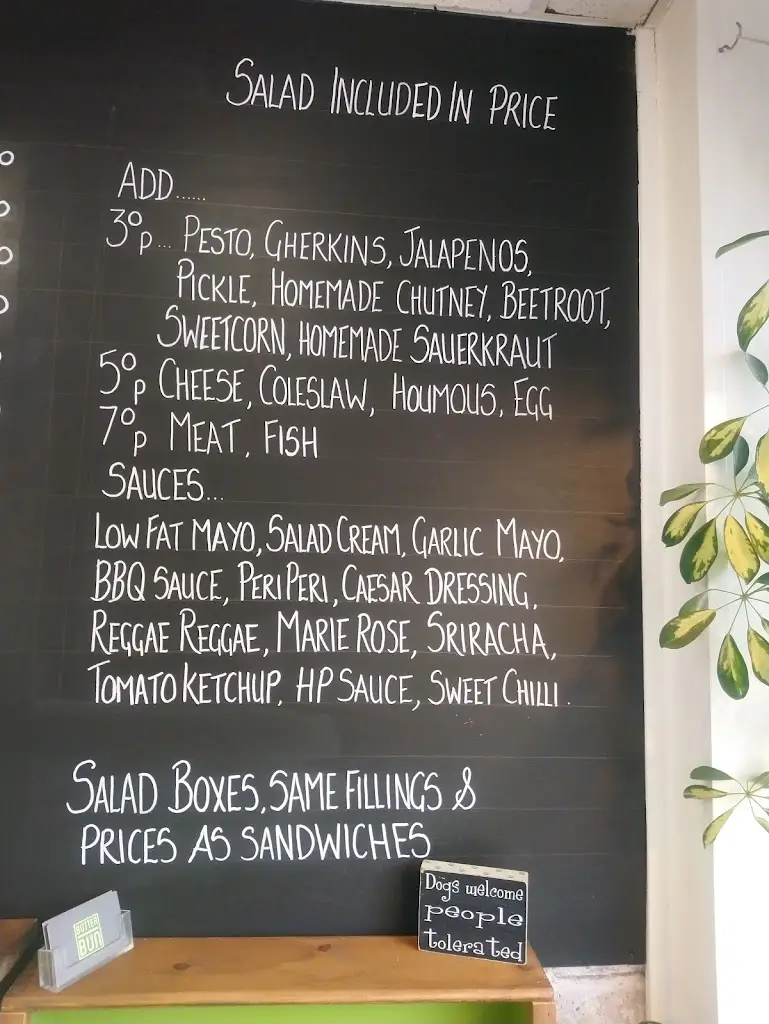 SALAD INCLUDED IN PRICE
ADD......
30p... PESTO, GHERKINS, JALAPENOS,
PICKLE, HOMEMADE CHUTNEY, BEETROOT,
SWEETCORN, HOMEMADE SAUERKRAUT
50p CHEESE, COLESLAW, HOUMOUS, EGG
70p MEAT, FISH
SAUCES...
LOW FAT MAYO, SALAD CREAM, GARLIC MAYO,
BBQ SAUCE, PERI PERI, CAESAR DRESSING,
REGGAE REGGAE, MARIE ROSE, SRIRACHA,
TOMATO KETCHUP, HP SAUCE, SWEET CHILLI.
SALAD BOXES, SAME FILLINGS &
PRICES AS SANDWICHES
Dogs welcome
people
tolerated
BUTTER
BUN